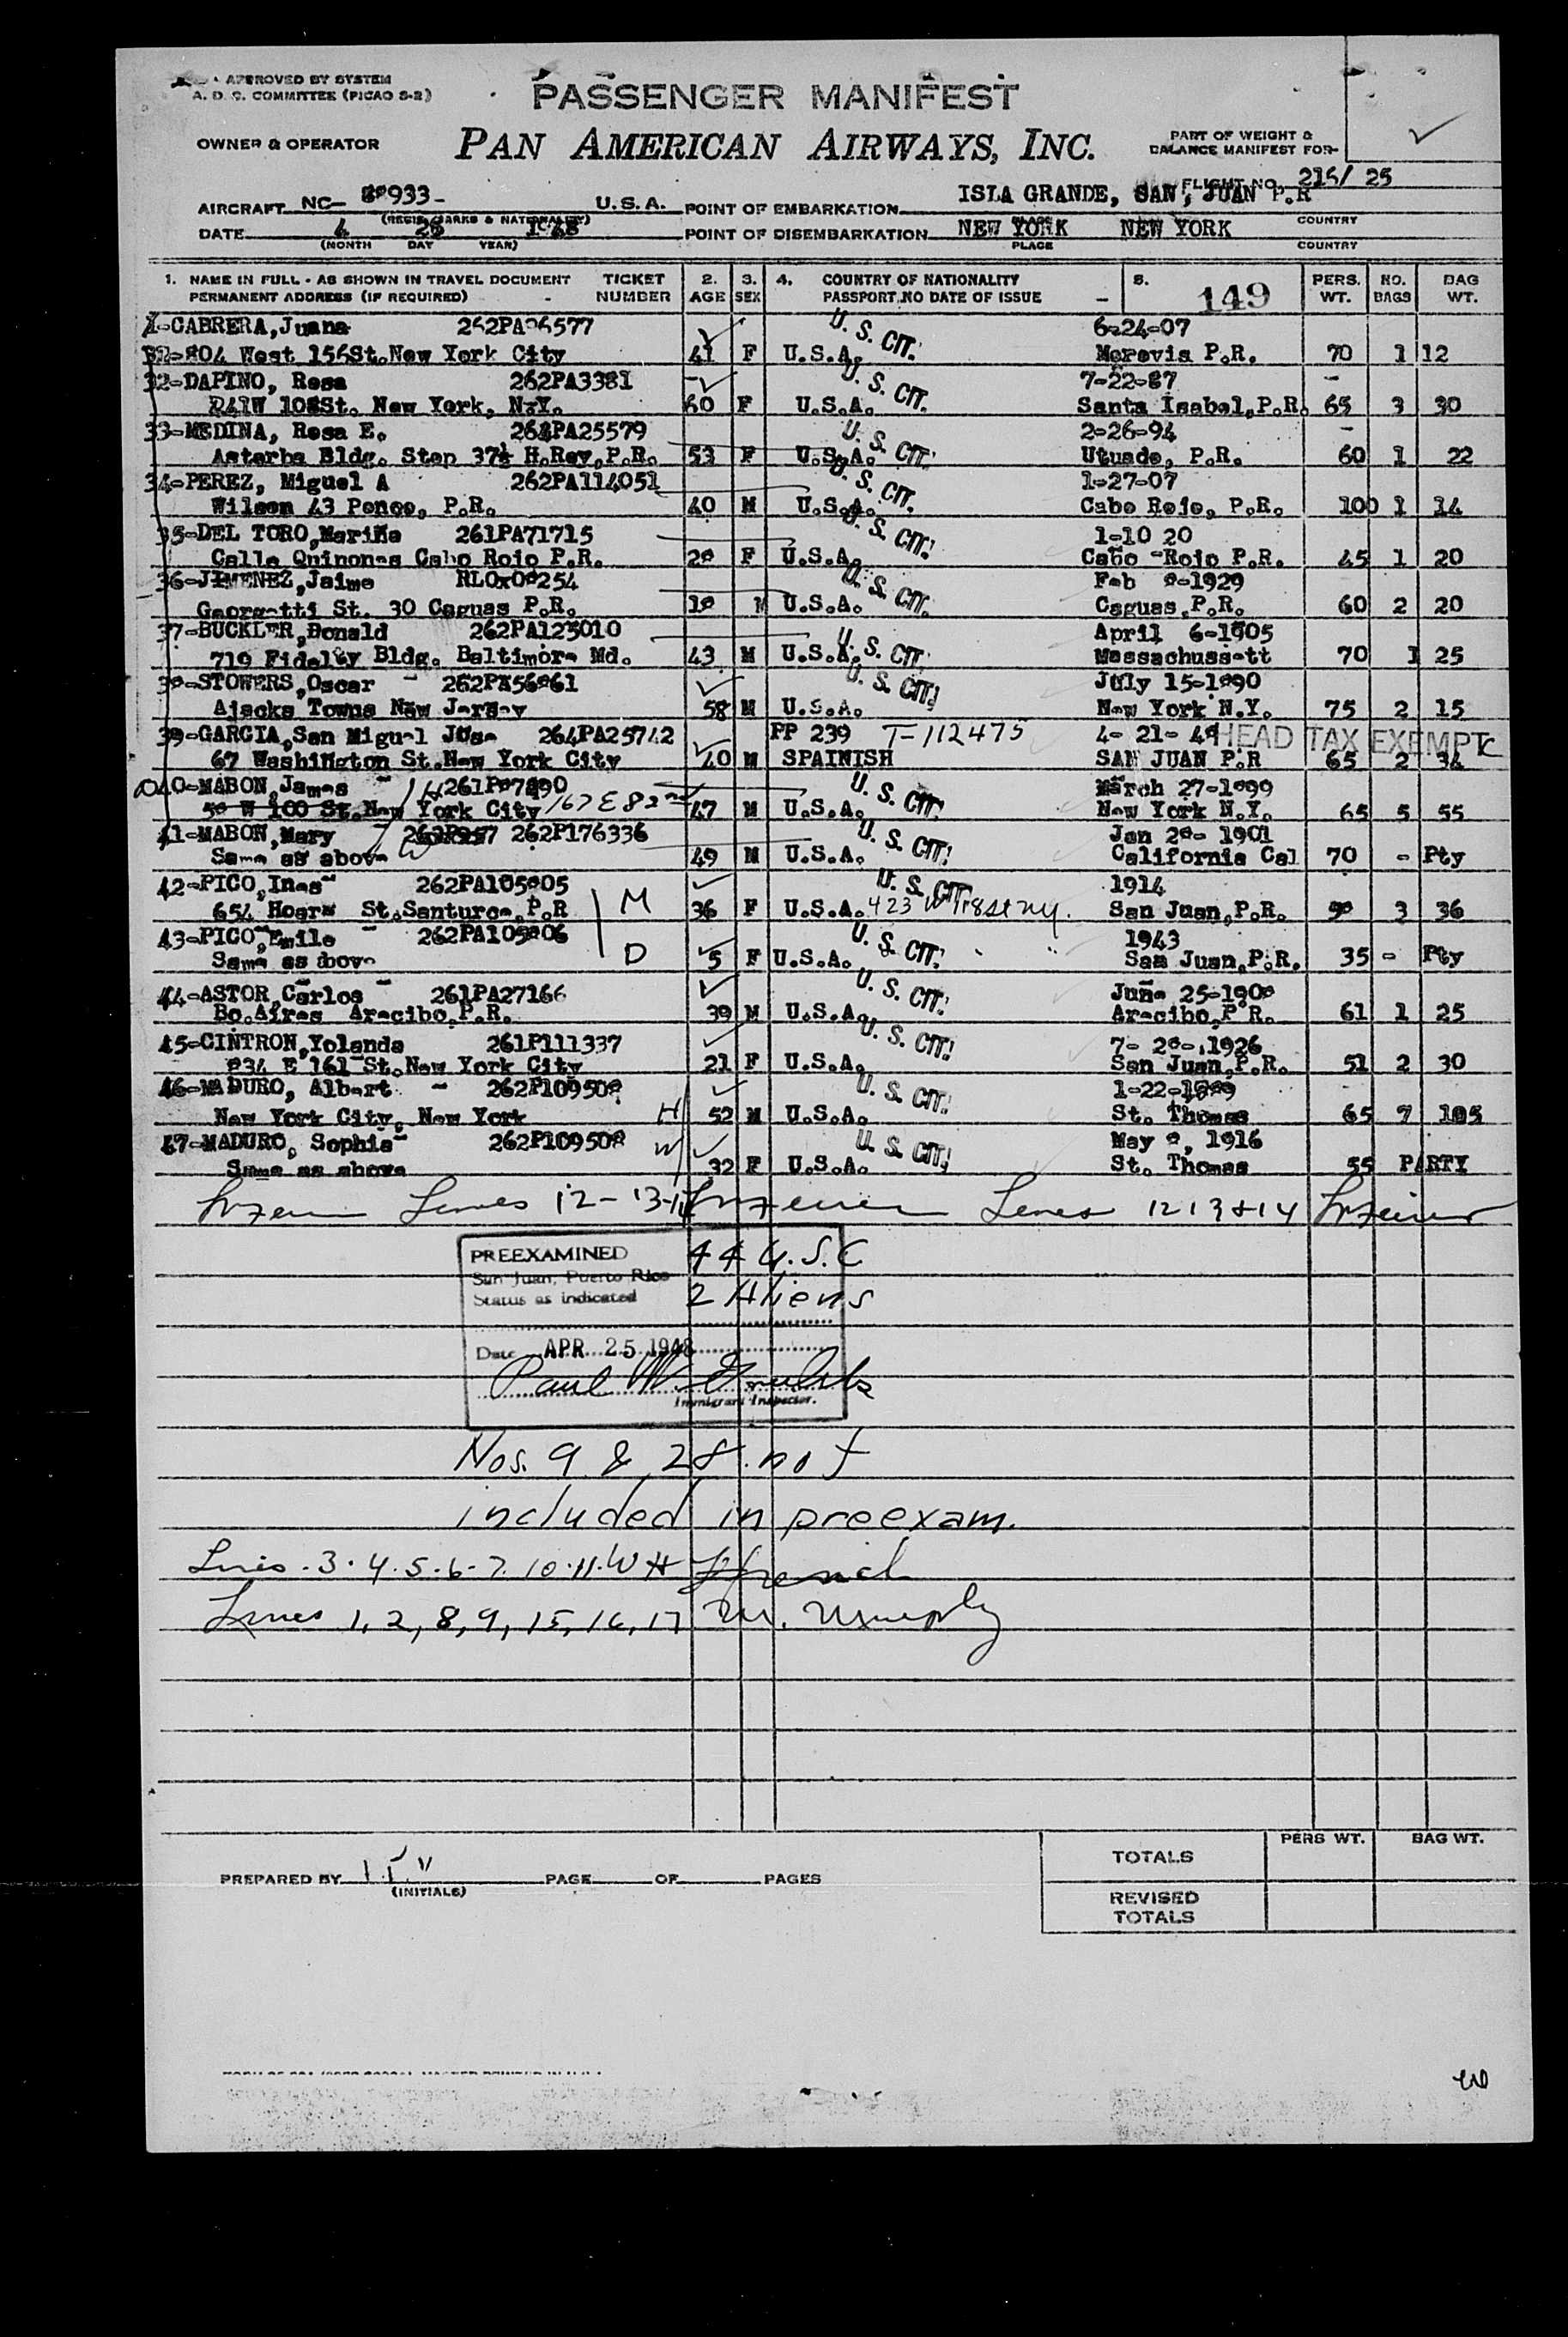 APPROVED BY SYSTEM
A. D. C. COMMITTEE (PICAO S-2)
PASSENGER MANIFEST
OWNER & OPERATOR
PAN AMERICAN AIRWAYS, INC.
PART OF WEIGHT &
BALANCE MANIFEST FOR
FLIGHT NO. 216/ 25
AIRCRAFT NC- 933- U.S.A.
POINT OF EMBARKATION ISLA GRANDE, SAN, JUAN P.R
(REGIS. MARKS & NATIONALITY)
PLACE COUNTRY
DATE 4 25
POINT OF DISEMBARKATION NEW YORK NEW YORK
(MONTH DAY YEAR)
PLACE COUNTRY
1. NAME IN FULL - AS SHOWN IN TRAVEL DOCUMENT TICKET 2. 3. 4. COUNTRY OF NATIONALITY 5. 149 PERS. NO. BAG
PERMANENT ADDRESS (IF REQUIRED) NUMBER AGE SEX PASSPORT NO DATE OF ISSUE WT. BAGS WT.
CABRERA, Juana U. S. CIT. 6-24-07
804 West 156St. New York City 41 F U.S.A. Morovis P.R. 70 1 12
32-DAPINO, Rosa 262PA3381 U. S. CIT. 7-22-87
241W 108St. New York, N.Y. 60 F U.S.A. Santa Isabel, P.R. 65 3 30
33-MEDINA, Rosa E. U. S. CIT. 2-26-94
Asterba Bldg. Stop 37½ H.Rey, P.R. 53 F U.S.A. Utuado, P.R. 60 1 22
34-PEREZ, Miguel A 262PA114051 U. S. CIT. 1-27-07
Wilson 43 Ponce, P.R. 40 M U.S.A. Cabo Rojo, P.R. 100 1 14
35-DEL TORO, 261PA71715 U. S. CIT. 1-10 20
Calle Quinones Cabo Rojo P.R. F U.S.A. Cabo Rojo P.R. 45 1 20
36-JIMENEZ, Jaime U. S. CIT. Feb -1929
Georgetti St. 30 Caguas P.R. M U.S.A. Caguas, P.R. 60 2 20
37-BUCKLER, Donald 262PA123010 U. S. CIT. April 6-1905
719 Fidelty Bldg. Baltimore Md. 43 M U.S.A. 70 1 25
STOWERS, Oscar U. S. CIT. July 15-1890
Ajacks Towns New Jersey 58 M U.S.A. New York N.Y. 75 2 15
39-GARCIA, San Miguel Jose 264PA25742 PP 239 T-112475 4- 21- HEAD TAX EXEMPT
67 Washington St. New York City 40 M SPAINISH SAN JUAN P.R 65 2 34
40-MABON, James H U. S. CIT. March 27-1899
50 W 100 St. New York City 167 E 82nd 47 M U.S.A. New York N.Y. 65 5 55
41-MABON, Mary 262P176336 U. S. CIT. 1901
Same as above W 49 M U.S.A. California Cal 70 - Pty
42-PICO, Ines 262PA105805 U. S. CIT. 1914
654 Hoare St. Santurce, P.R M 36 F U.S.A. San Juan, P.R. 3 36
43-PICO, Emile 262PA105806 U. S. CIT. 1943
Same as above D 5 F U.S.A. San Juan, P.R. 35 - Pty
44-ASTOR, Carlos 261PA27166 U. S. CIT. June 25-1908
Bo. Aires Arecibo, P.R. 39 M U.S.A. Arecibo, P.R. 61 1 25
45-CINTRON, Yolanda 261P111337 U. S. CIT. 1926
834 E 161 St. New York City 21 F U.S.A. San Juan, P.R. 51 2 30
46-MADURO, Albert 262P109508 U. S. CIT.
New York City, New York H 52 M U.S.A. St. Thomas 65 7 105
47-MADURO, Sophia 262P109508 U. S. CIT. May 8, 1916
Same as above W 32 F U.S.A. St. Thomas 55 PARTY
Lines 12-13-14 Lines 12 13 & 14
PREEXAMINED 44 U.S.C
San Juan, Puerto Rico
Status as indicated 2 Aliens
Date APR 25 1948
Paul W.
Immigrant Inspector.
Nos. 9 & 28 not
included in preexam.
Lines 3.4.5.6-7.10.11.
Lines 1, 2, 8, 9, 15, 16, 17
PERS WT. BAG WT.
TOTALS
PREPARED BY PAGE OF PAGES
(INITIALS)
REVISED
TOTALS